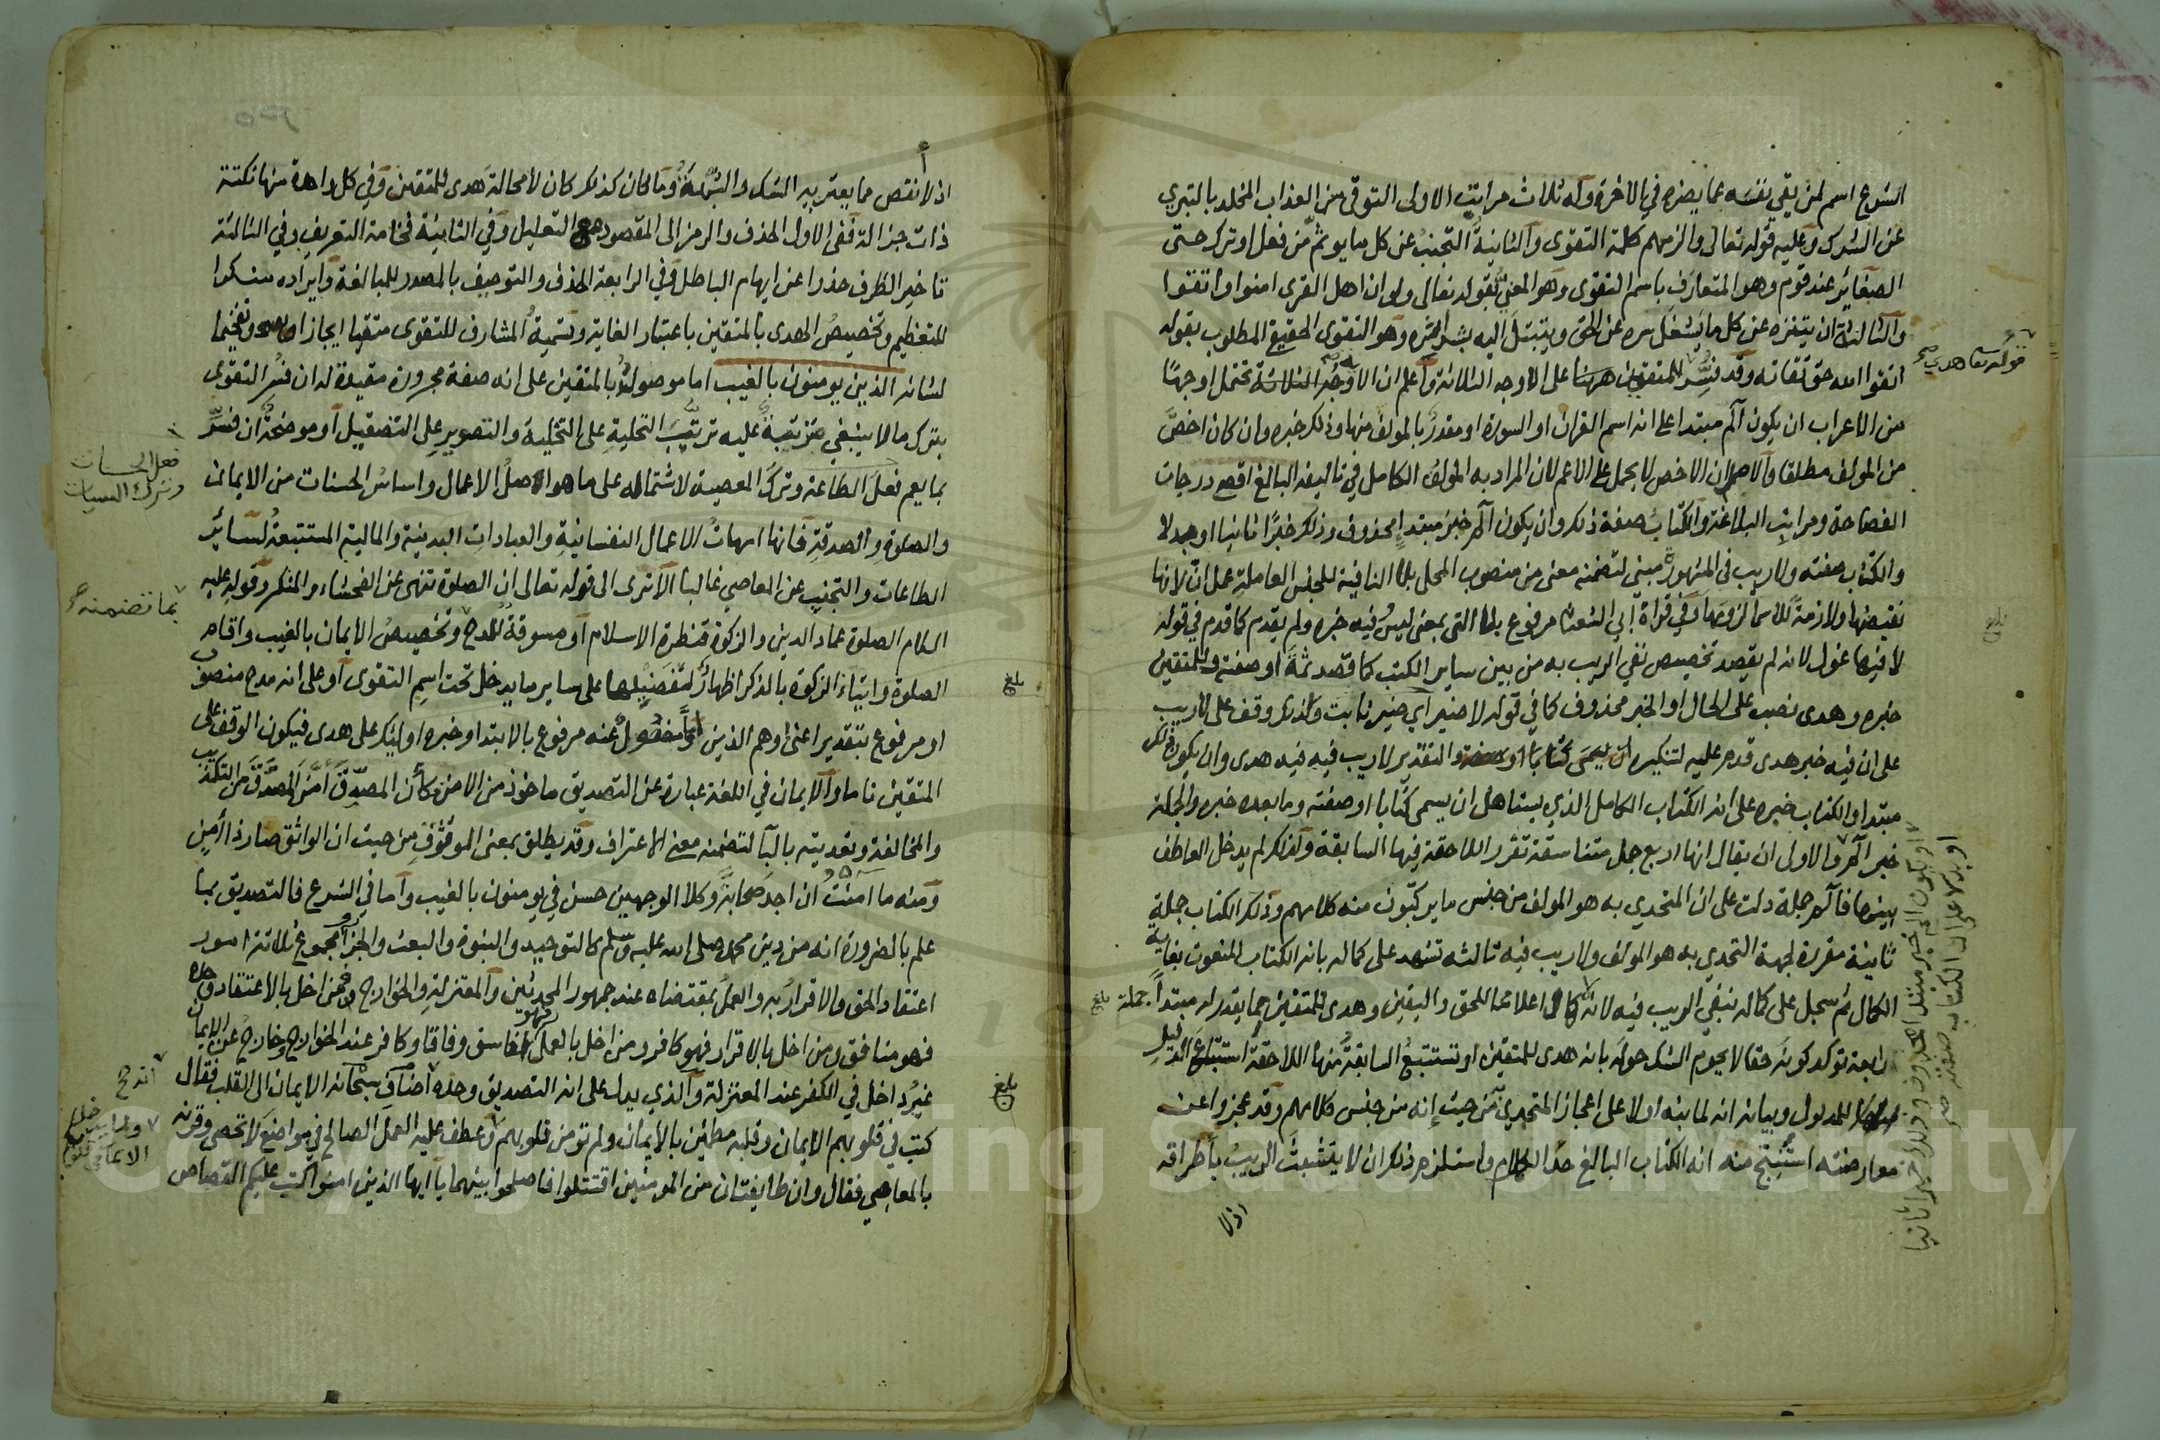 الشرع اسم لمن يقي نفسه عما يضره في الاخرة وله ثلاث مراتب الاولى التوقي من العذاب المخلد بالتبري
عن الشرك وعليه قوله تعالى والزمهم كلمة التقوى والثانية التجنب عن كل ما يوثم من فعل او ترك حتى
الصغائر عند قوم وهو المتعارف باسم التقوى وهو المعني بقوله تعالى ولو ان اهل القرى امنوا واتقوا
والثالثة ان يتنزه عن كل ما يشغل سره عن الحق ويتبتل اليه بشراشره وهو التقوى الحقيقي المطلوب بقوله
اتقوا الله حق تقاته وقد فسر للمتقين ههنا على الاوجه الثلاثة واعلم ان الآية تحتمل اوجها
من الاعراب ان يكون آلم مبتدا على انه اسم القران او السورة او مقدر بالمولف منها وذلك خبره وان كان اخص
من المولف مطلقا والاصل ان الاخص لا يحمل على الاعم لان المراد به المولف الكامل في تاليفه البالغ اقصى درجات
الفصاحة ومراتب البلاغة والكتاب صفة ذلك وان يكون آلم خبر مبتدإ محذوف وذلك خبرا ثانيا او بدلا
والكتاب صفته ولا ريب في المشهورة مبني لتضمنه معنى من منصوب المحل بلا النافية للجنس العاملة عمل ان لانها
نقيضها ولازمة للاسما لزومها وفي قراة ابي الشعثا مرفوع بلا التي بمعنى ليس وفيه خبره ولم يقدم كما قدم في قوله
لا فيها غول لانه لم يقصد تخصيص نفي الريب به من بين ساير الكتب كما قصد ثمة او صفته وللمتقين
خبره وهدى نصب على الحال او الخبر محذوف كما في قوله لا ضير اي ضير ثابت ولذلك وقف على لا ريب
على ان فيه خبر هدى قدم عليه لتنكيره والتقدير لا ريب فيه فيه هدى وان يكون ذلك
مبتدا والكتاب خبره على انه الكتاب الكامل الذي يستاهل ان يسمى كتابا او صفته وما بعده خبره والجملة
خبر آلم والاولى ان يقال انها اربع جمل متناسقة تقرر اللاحقة فيها السابقة ولذلك لم يدخل العاطف
بينها فآلم جملة دلت على ان المتحدي به هو المولف من جنس ما يركبون منه كلامهم وذلك الكتاب جملة
ثانية مقررة لجهة التحدي به هو المولف ولا ريب فيه ثالثه تشهد على كماله بانه الكتاب المنعوت بغاية
الكمال ثم سجل على كماله بنفي الريب فيه لانه لا كمال اعلا مما للحق واليقين وهدى للمتقين بما يقدر له مبتدأ جملة
رابعة توكد كونه حقا لا يحوم الشك حوله بانه هدى للمتقين او تستتبع السابقة منها اللاحقة استتباع الدليل
للمدلول وبيانه انه لما نبه اولا على اعجاز المتحدي به من حيث إنه من جنس كلامهم وقد عجزوا عن
معارضته استنتج منه انه الكتاب البالغ حد الكلام واستلزم ذلك ان لا يتشبث الريب باطرافه
اذلا
قوله تعا هدى صح
او يكون آلم خبر مبتدا محذوف وذلك خبرا ثانيا
او بدلا على ان الكتاب صفته صح
بلغ
بلغ
اذ لا انقص مما يعتريه الشك والشبهة وما كان كذلك كان لا محالة هدى للمتقين وفي كل واحدة منها نكتة
ذات جزالة ففي الاولى الحذف والرمز الى المقصود مع التعليل وفي الثانية فخامة التعريف وفي الثالثة
تاخير الظرف حذرا عن ايهام الباطل وفي الرابعة الحذف والتوصيف بالمصدر للمبالغة وايراده منكرا
للتعظيم وتخصيص الهدى بالمتقين باعتبار الغاية وتسمية المشارف للتقوى متقيا ايجازا وتفخيما
لشانه الذين يومنون بالغيب اما موصول بالمتقين على انه صفة مجرورة مقيدة له ان فسر التقوى
بترك ما لا ينبغي مترتبة عليه ترتب التحلية على التخلية والتصوير على التصقيل او موضحة ان فسر
بما يعم فعل الطاعة وترك المعصية لاشتماله على ما هو اصل الاعمال واساس الحسنات من الايمان
والصلوة والصدقة فانها امهات الاعمال النفسانية والعبادات البدنية والمالية المستتبعة لسائر
الطاعات والتجنب عن المعاصي غالبا الا ترى الى قوله تعالى ان الصلوة تنهى عن الفحشاء والمنكر وقوله عليه
السلام الصلوة عماد الدين والزكوة قنطرة الاسلام او مسوقة للمدح وتخصيص الايمان بالغيب واقام
الصلوة وايتاء الزكوة بالذكر اظهار لتفضيلها على ساير ما يدخل تحت اسم التقوى او على انه مدح منصوب
او مرفوع بتقدير اعني او هم الذين واما مفصول عنه مرفوع بالابتدا وخبره اوليك على هدى فيكون الوقف على
المتقين تاما والايمان في اللغة عبارة عن التصديق ماخوذ من الامن كأن المصدق امن المصدق من التكذيب
والمخالفة وتعديته بالبا لتضمنه معنى الاعتراف وقد يطلق بمعنى الوثوق من حيث ان الواثق صار ذا أمن
ومنه ما امنت ان اجد صحابة وكلا الوجهين حسن في يومنون بالغيب واما في الشرع فالتصديق بما
علم بالضرورة انه من دين محمد صلى الله عليه وسلم كالتوحيد والنبوة والبعث والجزا ومجموع ثلاثة امور
اعتقاد الحق والاقرار به والعمل بمقتضاه عند جمهور المحدثين والمعتزلة والخوارج فمن اخل بالاعتقاد وحده
فهو منافق ومن اخل بالاقرار فهو كافر ومن اخل بالعمل ففاسق وفاقا وكافر عند الخوارج وخارج عن الايمان
غير داخل في الكفر عند المعتزلة والذي يدل على انه التصديق وحده اضاف سبحانه الايمان الى القلب فقال
كتب في قلوبهم الايمان وقلبه مطمئن بالايمان ولم تومن قلوبهم وعطف عليه العمل الصالح في مواضع لا تحصى وقرنه
بالمعاصي فقال وان طايفتان من المومنين اقتتلوا فاصلحوا بينهما يا ايها الذين امنوا كتب عليكم القصاص
فعل الحسنات
وترك السيات
بما تضمنه صح
انه صح
ولما يدخل
الايمان في قلوبكم
بلغ
بلغ
Copyright © King Saud University